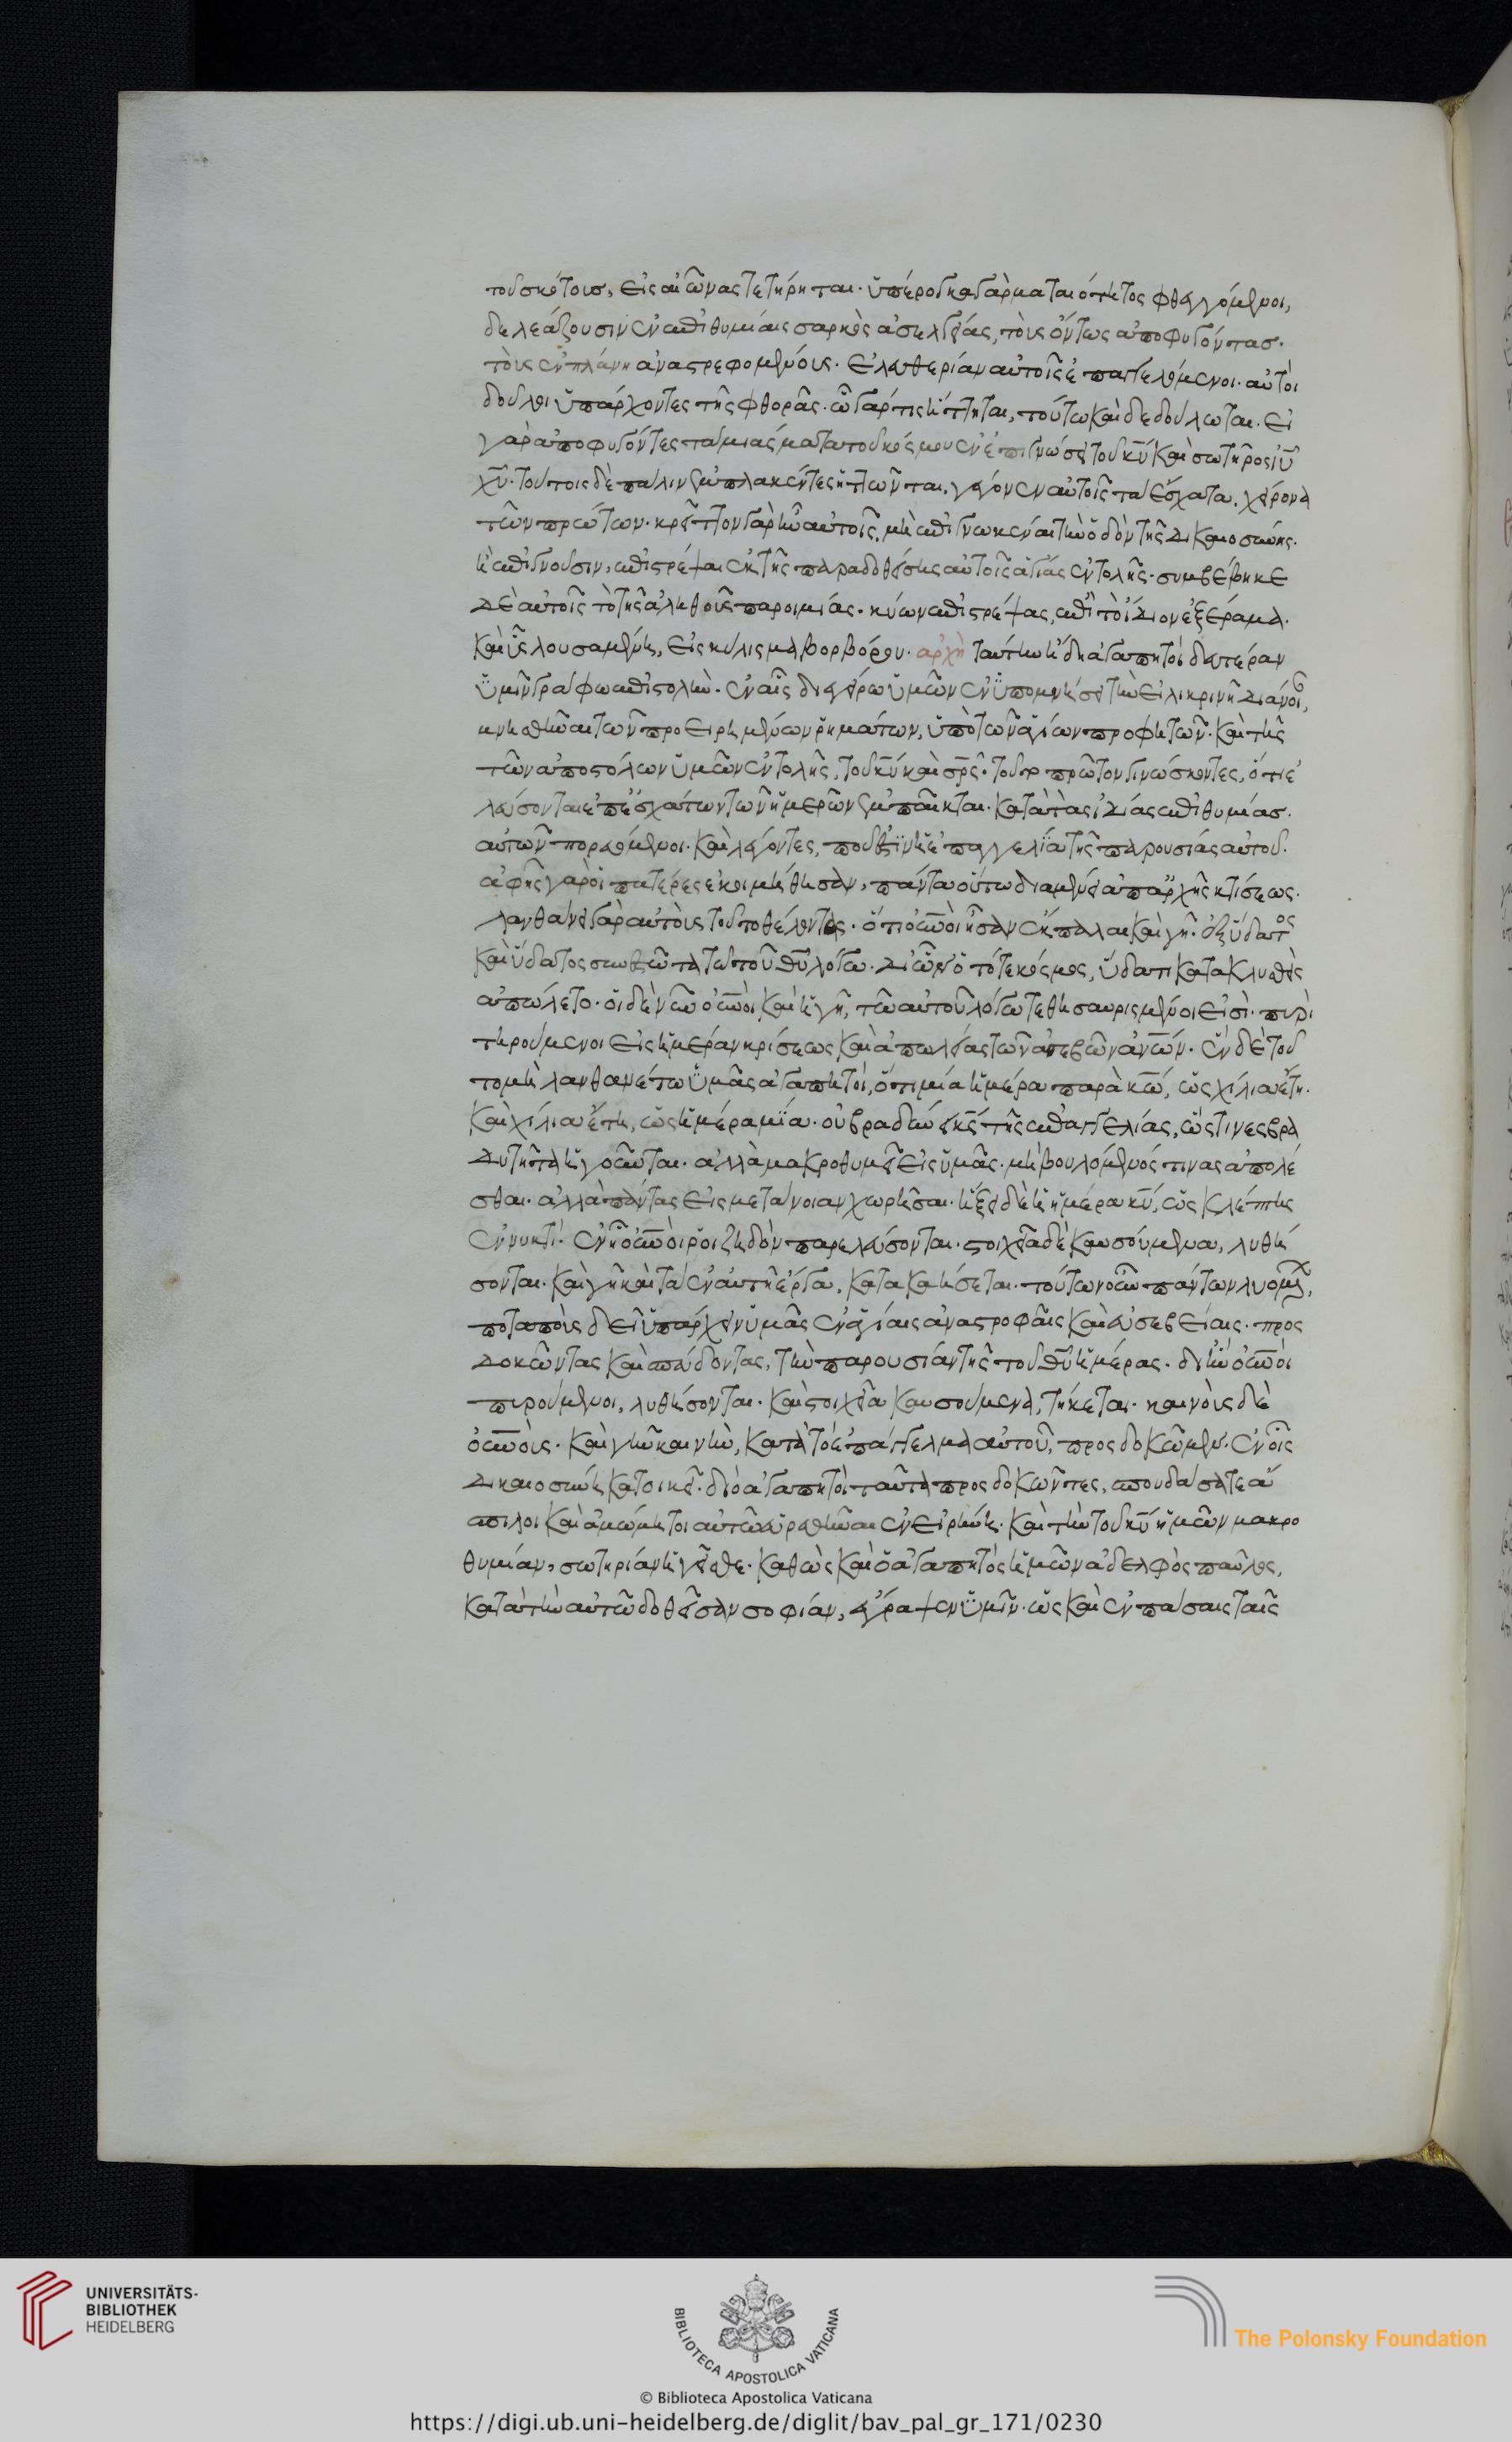 τοῦ σκότους, εἰς αἰῶνας τετήρηται. ὑπέρογκα γὰρ ματαιότητος φθεγγόμενοι,
δελεάζουσιν ἐν ἐπιθυμίαις σαρκὸς ἀσελγείας, τοὺς ὄντως ἀποφυγόντας.
τοὺς ἐν πλάνη ἀναστρεφομένους. ἐλευθερίαν αὐτοῖς ἐπαγγελόμενοι. αὐτοὶ
δοῦλοι ὑπάρχοντες τῆς φθορᾶς. ὧ γάρ τις ἥττηται, τούτω καὶ δεδούλωται. εἰ
γὰρ ἀποφυγόντες τὰ μιάσματα τοῦ κόσμου ἐν ἐπιγνώσει τοῦ κυ καὶ σωτῆρος ιυ
χυ. τούτοις δὲ πάλιν ἐμπλακέντες ἡττῶνται, γέγονεν αὐτοῖς τὰ ἔσχατα, χείρονα
τῶν πρώτων. κρεῖττον γὰρ ἦν αὐτοῖς, μὴ ἐπιγνωκέναι τὴν ὁδὸν τῆς δικαιοσύνης.
ἢ ἐπιγνοῦσιν, ἐπιστρέψαι ἐκ τῆς παραδοθείσης αὐτοῖς ἁγίας ἐντολῆς. συμβέβηκε
δὲ αὐτοῖς τὸ τῆς ἀληθοῦς παροιμίας. κύων ἐπιστρέψας, ἐπὶ τὸ ἴδιον ἐξέραμα.
καὶ ὗς λουσαμένη, εἰς κύλισμα βορβόρου. ἀρχὴ ταύτην ἤδη ἀγαπητοὶ δευτέραν
ὑμῖν γράφω ἐπιστολὴν. ἐν αἷς διεγείρω ὑμῶν ἐν ὑπομνήσει τὴν εἰλικρινῆ διάνοι,
μνησθῆναι τῶν προειρημένων ῥημάτων, ὑπὸ τῶν ἁγίων προφητῶν. καὶ τῆς
τῶν ἀποστόλων ὑμῶν ἐντολῆς, τοῦ κυ καὶ σρς. τοῦτο πρῶτον γινώσκοντες, ὅτι ἐ
λεύσονται ἐπ' ἐσχάτων τῶν ἡμερῶν ἐμπαῖκται. κατὰ τὰς ἰδίας ἐπιθυμίας
αὐτῶν πορευόμενοι. καὶ λέγοντες, ποῦ ἐστὶν ἡ ἐπαγγελία τῆς παρουσίας αὐτοῦ.
ἀφ' ἧς γὰρ οἱ πατέρες ἐκοιμήθησαν, πάντα οὕτω διαμένει ἀπ' ἀρχῆς κτίσεως.
λανθάνει γὰρ αὐτοὺς τοῦτο θέλοντας. ὅτι οὐνοὶ ἦσαν ἔκπαλαι καὶ γῆ. ἐξ ὕδατος
καὶ ὕδατος συνεστῶτα τῶ τοῦ θυ λόγω. δι' ὧν ὁ τότε κόσμος, ὕδατι κατακλυσθεὶς
ἀπώλετο. οἱ δὲ νῦν οὐνοὶ καὶ ἡ γῆ, τῶ αὐτοῦ λόγω τεθησαυρισμένοι εἰσὶ. πυρὶ
τηρούμενοι εἰς ἡμέραν κρίσεως καὶ ἀπωλείας τῶν ἀσεβῶν ἀνων. ἓν δὲ τοῦ
το μὴ λανθανέτω ὑμᾶς ἀγαπητοί, ὅτι μία ἡμέρα παρὰ κω, ὡς χίλια ἔτη.
καὶ χίλια ἔτη, ὡς ἡμέρα μία. οὐ βραδύνει κς τῆς ἐπαγγελίας, ὥς τινες βρα
δυτῆτα ἡγοῦνται. ἀλλὰ μακροθυμεῖ εἰς ὑμᾶς. μὴ βουλόμενός τινας ἀπολέ
σθαι. ἀλλὰ πάντας εἰς μετάνοιαν χωρῆσαι. ἥξει δὲ ἡ ἡμέρα κυ, ὡς κλέπτης
ἐν νυκτί. ἐν ἧ οὐνοὶ ῥοιζηδὸν παρελεύσονται. στοιχεῖα δὲ καυσούμενα, λυθή
σονται. καὶ γῆ καὶ τὰ ἐν αὐτῆ ἔργα, κατακαήσεται. τούτων οὖν πάντων λυομέν,
ποταποὺς δεῖ ὑπάρχειν ὑμᾶς ἐν ἁγίαις ἀναστροφαῖς καὶ εὐσεβείαις. προς
δοκῶντας καὶ σπεύδοντας, τὴν παρουσίαν τῆς τοῦ θυ ἡμέρας. δι' ἣν οὐνοὶ
πυρούμενοι, λυθήσονται. καὶ στοιχεῖα καυσούμενα, τήκεται. καινοὺς δὲ
οὐνοὺς. καὶ γῆν καινὴν, κατὰ τὸ ἐπάγγελμα αὐτοῦ, προσδοκῶμεν. ἐν οἷς
δικαιοσύνη κατοικεῖ. διὸ ἀγαπητοὶ ταῦτα προσδοκῶντες, σπουδάσατε ἄ
σπιλοι καὶ ἀμώμητοι αὐτῶ εὑρεθῆναι ἐν εἰρήνη. καὶ τὴν τοῦ κυ ἡμῶν μακρο
θυμίαν, σωτηρίαν ἡγεῖσθε. καθὼς καὶ ὁ ἀγαπητὸς ἡμῶν ἀδελφὸς παῦλος,
κατὰ τὴν αὐτῶ δοθεῖσαν σοφίαν, ἔγραψεν ὑμῖν. ὡς καὶ ἐν πάσαις ταῖς
UNIVERSITÄTS-
BIBLIOTHEK
HEIDELBERG
BIBLIOTECA APOSTOLICA VATICANA
The Polonsky Foundation
© Biblioteca Apostolica Vaticana
https://digi.ub.uni-heidelberg.de/diglit/bav_pal_gr_171/0230